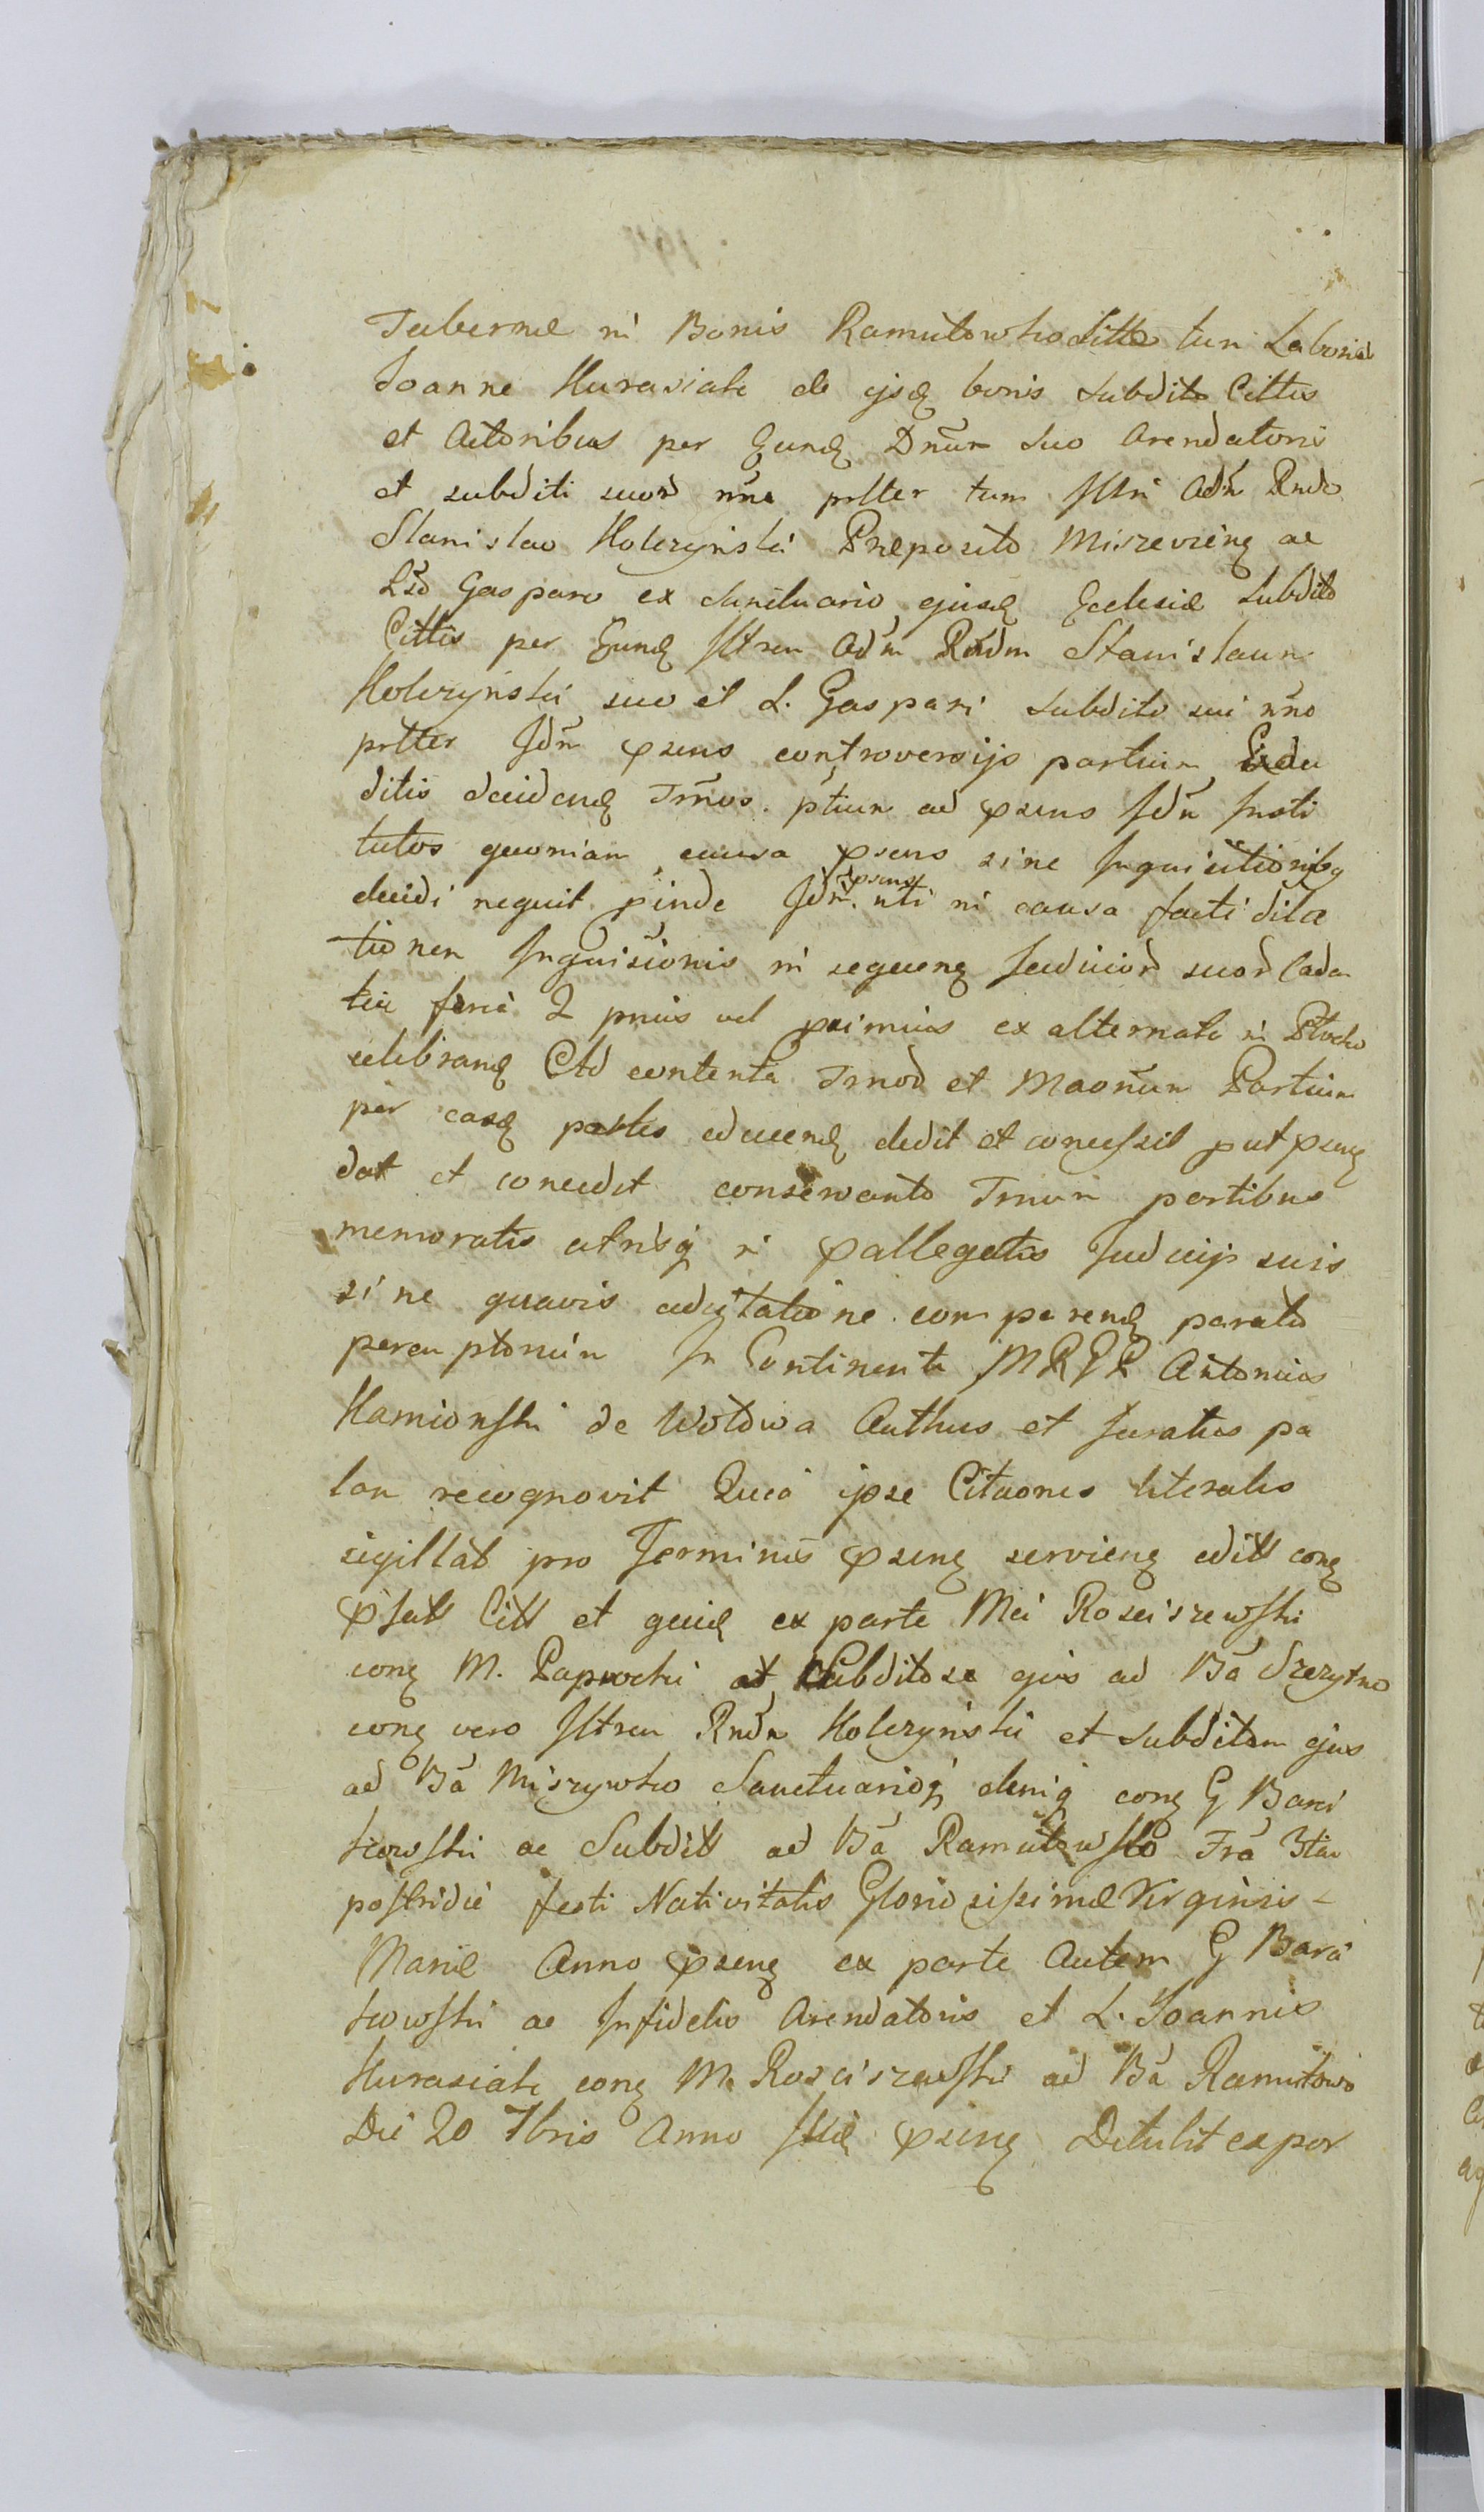 Tabernæ in Bonis Ramutowko Sitto tum Laborioso
Joanne Kurasiak de ejsdę bonis Subdito Cittis
et Actoribus per Eundę Dnum suo Arendatoris
et subditi suor nne prtter tum Illri Adm Rndo
Stanislao Kolczyński Præposito Miszeviens ac
Lso Gasparo ex Sanctuario ejusdę Ecclesiæ Subdito
Cittis per Eundę Illrem Adm Rndm Stanislaum
Kolczyński suo et L. Gaspari Subditi sui nno
prtter Jdm psens controversijs partium Exdu
ditis decidendę Trnos. ptium ad psens Jdm Insti
tutos quoniam causa psens sine Inquisitionibq
decidi nequit pinde Jdm psens uti in causa facti dila
tionem Inquisionis in sequenę Judicior suor Cada
tiæ feriæ 2 pnius vel proximius ex alternata in Plocko
celebrandę Ctd contenta Trnod et Maonum Partium
per easdę partes educendę dedit et concessit put psenę
dat et concedit conservanto Trnum partibus
memoratis utrisq in pallegatis Judicijs suis
sine quavis adcitatione comparendę parato
peremptorium In Continenti MRGP Antonius
Kamionski de Wolowa Authus et Juratus pa
lam recognovit Quia ipse Citaones literales
sigillat pro Terminis psenę servienę editt conę
pfatt Citt et quidę ex parte Mci Rosciszewski
conę M. Paprocki et Subditose ejus ad Ba Szczytno
conę vero Illrem Rndm Kolczyński et subditum ejus
ad Ba Miszywko Sanctuarioq deniq conę G Barci
kowski ac Subditt ad Ba Ramutowko Fra 3tia
postridie festi Nativitatis Gloriosissimæ Virginis
Mariæ Anno psenę ex parte Autem G Barci
kowski ac Infidelis Arendatoris et L. Joannis
Kurasiak conę M. Rosciszewski ad Ba Ramutowo
Die 20 7bris Anno psenę Detulit ex par